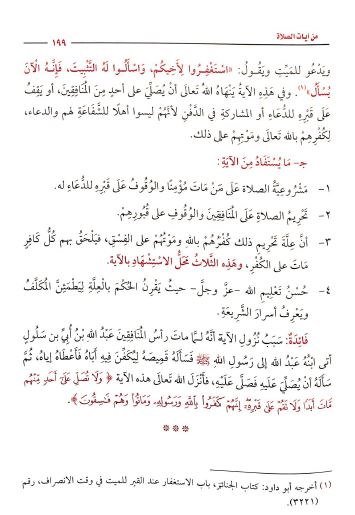 من آيات الصلاة
١٩٩
ويَدْعُو للمَيِّتِ ويَقُولُ: «اسْتَغْفِرُوا لِأَخِيكُمْ، وَاسْأَلُوا لَهُ التَّثْبِيتَ، فَإِنَّهُ الْآنَ
يُسْأَلُ»(١). وفي هَذِهِ الآيَةُ يَنْهَاهُ اللهُ تَعَالَى أَنْ يُصَلِّيَ على أحدٍ مِنَ المُنَافِقِينَ، أو يَقِفَ
عَلَى قَبْرِهِ للدُّعَاءِ أو المشاركةِ في الدَّفْنِ لأنَّهُمْ ليسوا أهلًا للشَّفَاعَةِ لهم والدعاء،
لِكُفْرِهِمْ بالله تَعَالى ومَوْتِهِمْ على ذلك.
جـ- مَا يُسْتَفَادُ مِنَ الآيَةِ:
١- مَشْرُوعِيَّةُ الصلاة عَلَى مَنْ مَاتَ مُؤْمِنًا والوُقُوفُ عَلَى قَبْرِهِ للدُّعَاءِ له.
٢- تَحْرِيمُ الصَّلاةِ عَلَى المُنَافِقِينَ والوُقُوفِ على قُبُورِهِمْ.
٣- أنَّ عِلَّةَ تَحْرِيمِ ذلك كُفْرُهُمْ باللهِ ومَوْتُهُمْ عَلَى الفِسْقِ، فيَلْحَقُ بهم كُلُّ كافِرٍ
مَاتَ على الكُفْرِ، وهَذِهِ الثَّلَاثُ مَحَلُّ الِاسْتِشْهَادِ بالآية.
٤- حُسْنُ تَعْلِيمِ الله -عزَّ وجلَّ- حيثُ يَقْرِنُ الحُكْمَ بالعِلَّةِ لِيَطْمَئِنَّ المُكَلَّفُ
ويَعْرِفَ أسرارَ الشَّرِيعَةِ.
فَائِدَةٌ: سَبَبُ نُزُولِ الآية أنَّهُ لـمَّا ماتَ رأسُ المُنَافِقِينَ عَبدُ اللهِ بنُ أُبيِّ بنِ سَلُولٍ
أتى ابْنُهُ عَبدُ الله إلى رَسُولِ اللهِ ﷺ فَسَأَلَهُ قَمِيصَهُ لِيُكَفِّنَ فِيهِ أَبَاهُ فأَعْطَاهُ إيَّاهُ، ثُمَّ
سَأَلَهُ أَنْ يُصَلِّيَ عَلَيْهِ فَصَلَّى عَلَيْهِ، فأَنْزَلَ الله تعالى هذه الآية ﴿وَلَا تُصَلِّ عَلَىٰ أَحَدٍ مِّنْهُم
مَّاتَ أَبَدًا وَلَا تَقُمْ عَلَىٰ قَبْرِهِ إِنَّهُمْ كَفَرُوا بِاللَّهِ وَرَسُولِهِ وَمَاتُوا وَهُمْ فَاسِقُونَ﴾.
* * *
(١) أخرجه أبو داود: كتاب الجنائز، باب الاستغفار عند القبر للميت في وقت الانصراف، رقم
(٣٢٢١).